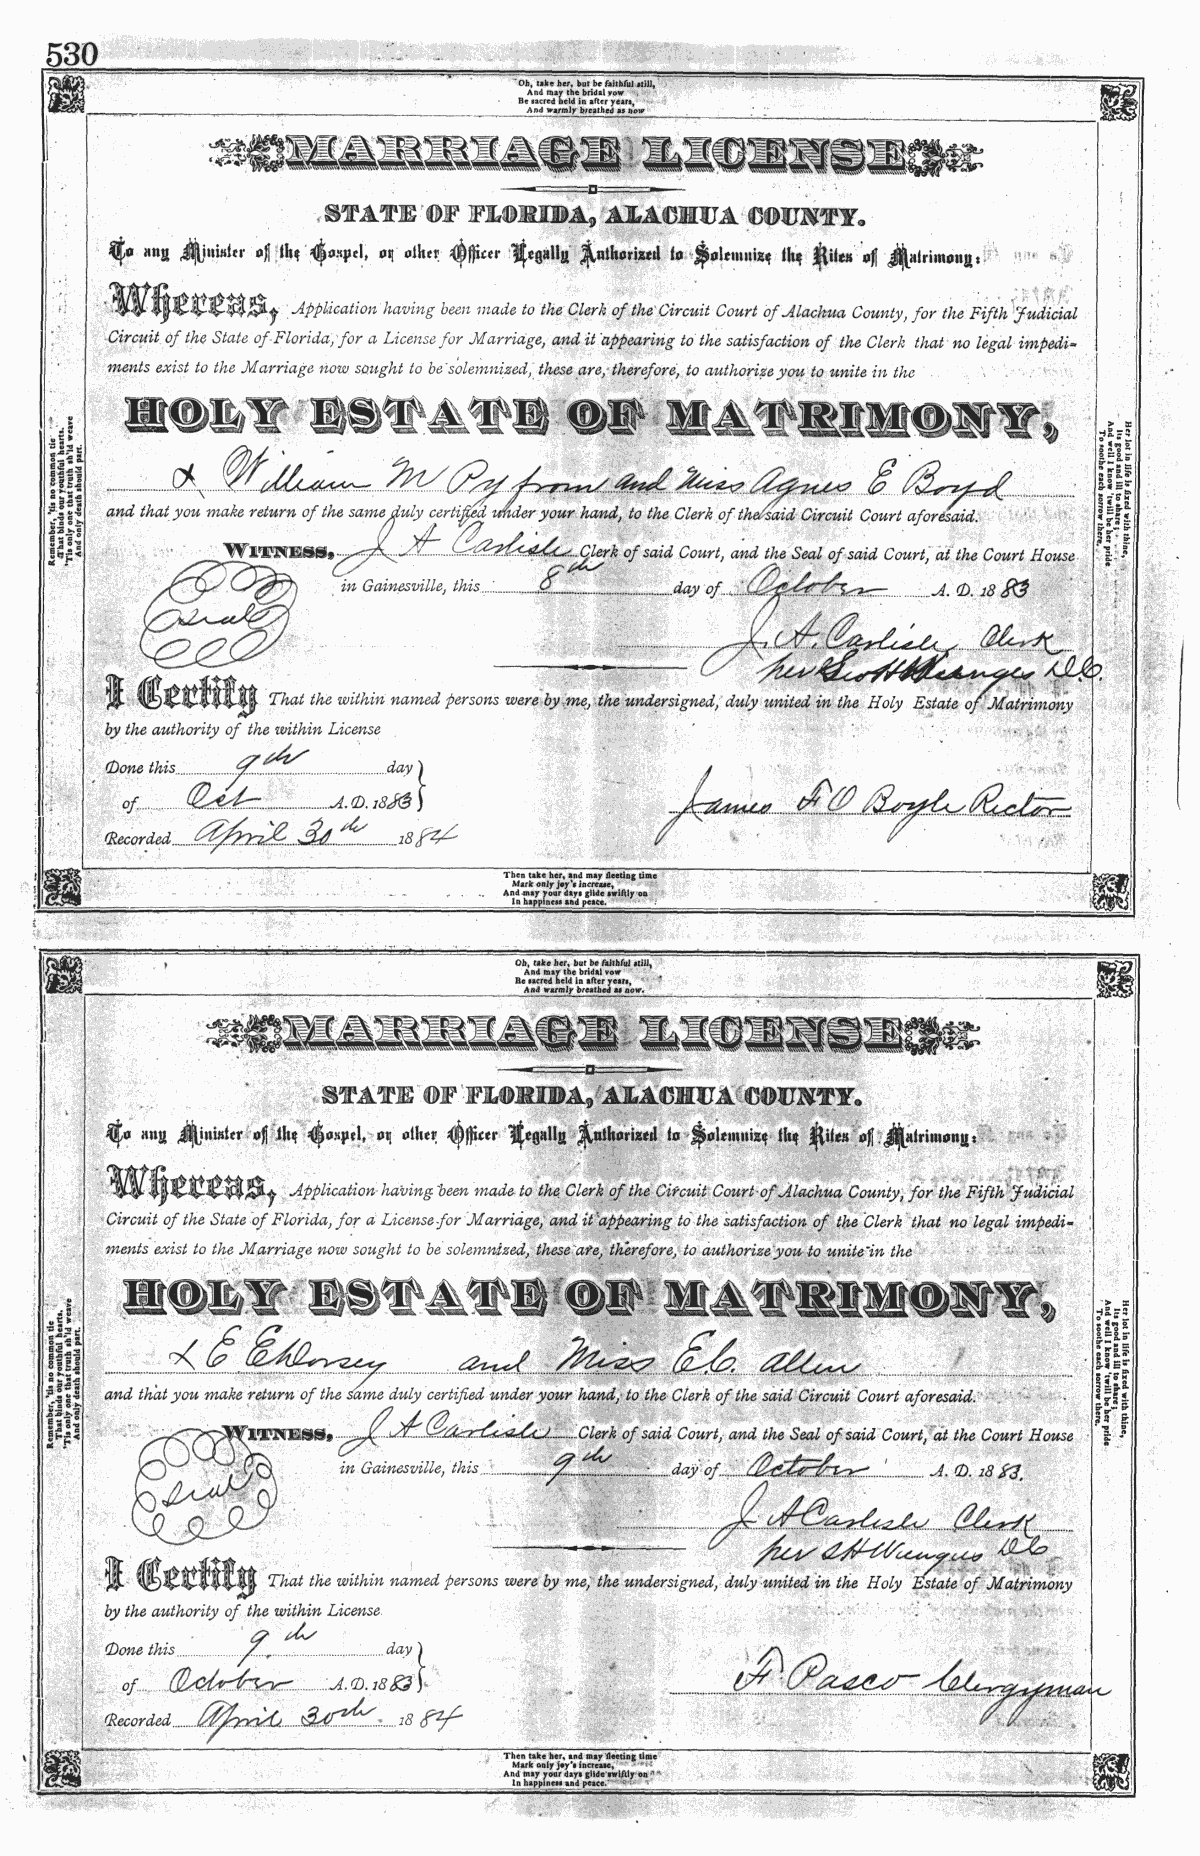 530
Oh, take her, but be faithful still,
And may the bridal vow
Be sacred held in after years,
And warmly breathed as now
MARRIAGE LICENSE
STATE OF FLORIDA, ALACHUA COUNTY.
To any Minister of the Gospel, or other Officer Legally Authorized to Solemnize the Rites of Matrimony:
Whereas, Application having been made to the Clerk of the Circuit Court of Alachua County, for the Fifth Judicial
Circuit of the State of Florida, for a License for Marriage, and it appearing to the satisfaction of the Clerk that no legal impedi-
ments exist to the Marriage now sought to be solemnized, these are, therefore, to authorize you to unite in the
HOLY ESTATE OF MATRIMONY,
x William M Pyfrom and Miss Agnes E Boyd
and that you make return of the same duly certified under your hand, to the Clerk of the said Circuit Court aforesaid.
WITNESS, J A Carlisle Clerk of said Court, and the Seal of said Court, at the Court House
in Gainesville, this 8th day of October A. D. 1883
Seal
J. A. Carlisle, Clerk
per D.C.
I Certify That the within named persons were by me, the undersigned, duly united in the Holy Estate of Matrimony
by the authority of the within License
Done this 9th day
of Oct A.D. 1883
James F O Boyle Rector
Recorded April 30th 1884
Remember, 'tis no common tie
That binds our youthful hearts.
'Tis only one that truth sh'ld weave
And only death should part.
Her lot in life is fixed with thine,
Its good and ill to share;
And well I know 'twill be her pride
To soothe each sorrow there.
Then take her, and may fleeting time
Mark only joy's increase,
And may your days glide swiftly on
In happiness and peace.
Oh, take her, but be faithful still,
And may the bridal vow
Be sacred held in after years,
And warmly breathed as now.
MARRIAGE LICENSE
STATE OF FLORIDA, ALACHUA COUNTY.
To any Minister of the Gospel, or other Officer Legally Authorized to Solemnize the Rites of Matrimony:
Whereas, Application having been made to the Clerk of the Circuit Court of Alachua County, for the Fifth Judicial
Circuit of the State of Florida, for a License for Marriage, and it appearing to the satisfaction of the Clerk that no legal impedi-
ments exist to the Marriage now sought to be solemnized, these are, therefore, to authorize you to unite in the
HOLY ESTATE OF MATRIMONY,
x E E Dorsey and Miss E.C. Allen
and that you make return of the same duly certified under your hand, to the Clerk of the said Circuit Court aforesaid.
WITNESS, J A Carlisle Clerk of said Court, and the Seal of said Court, at the Court House
in Gainesville, this 9th day of October A. D. 1883.
Seal
J A Carlisle Clerk
per S H Wienges DC
I Certify That the within named persons were by me, the undersigned, duly united in the Holy Estate of Matrimony
by the authority of the within License
Done this 9th day
of October A.D. 1883
F. Pasco Clergyman
Recorded April 30th 1884
Remember, 'tis no common tie
That binds our youthful hearts.
'Tis only one that truth sh'ld weave
And only death should part.
Her lot in life is fixed with thine,
Its good and ill to share;
And well I know 'twill be her pride
To soothe each sorrow there.
Then take her, and may fleeting time
Mark only joy's increase,
And may your days glide swiftly on
In happiness and peace.